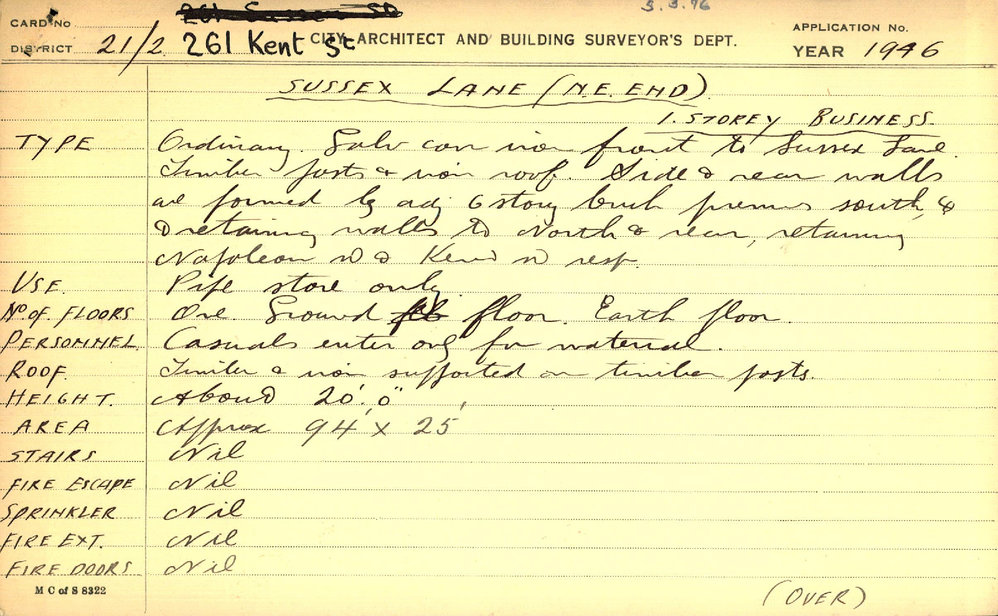 261 Sussex St
5.3.76
CARD No
DISTRICT 21/2 261 Kent St CITY ARCHITECT AND BUILDING SURVEYOR'S DEPT.
APPLICATION No.
YEAR 1946
SUSSEX LANE (N.E. END)
1. STOREY BUSINESS.
TYPE Ordinary. Galv corr iron front to Sussex Lane.
Timber posts & iron roof. Side & rear walls
are formed by adj 6 story brick premises south, &
& retaining walls to North & rear, retaining
Napoleon St & Kent St resp.
USE. Pipe store only.
No of. FLOORS One Ground floor. Earth floor.
PERSONNEL Casuals enter only for material.
ROOF. Timber & iron supported on timber posts.
HEIGHT. About 20'.0"
AREA Approx 94' x 25'
STAIRS Nil
FIRE ESCAPE Nil
SPRINKLER Nil
FIRE EXT. Nil
FIRE DOORS Nil
M C of S 8322
(OVER)